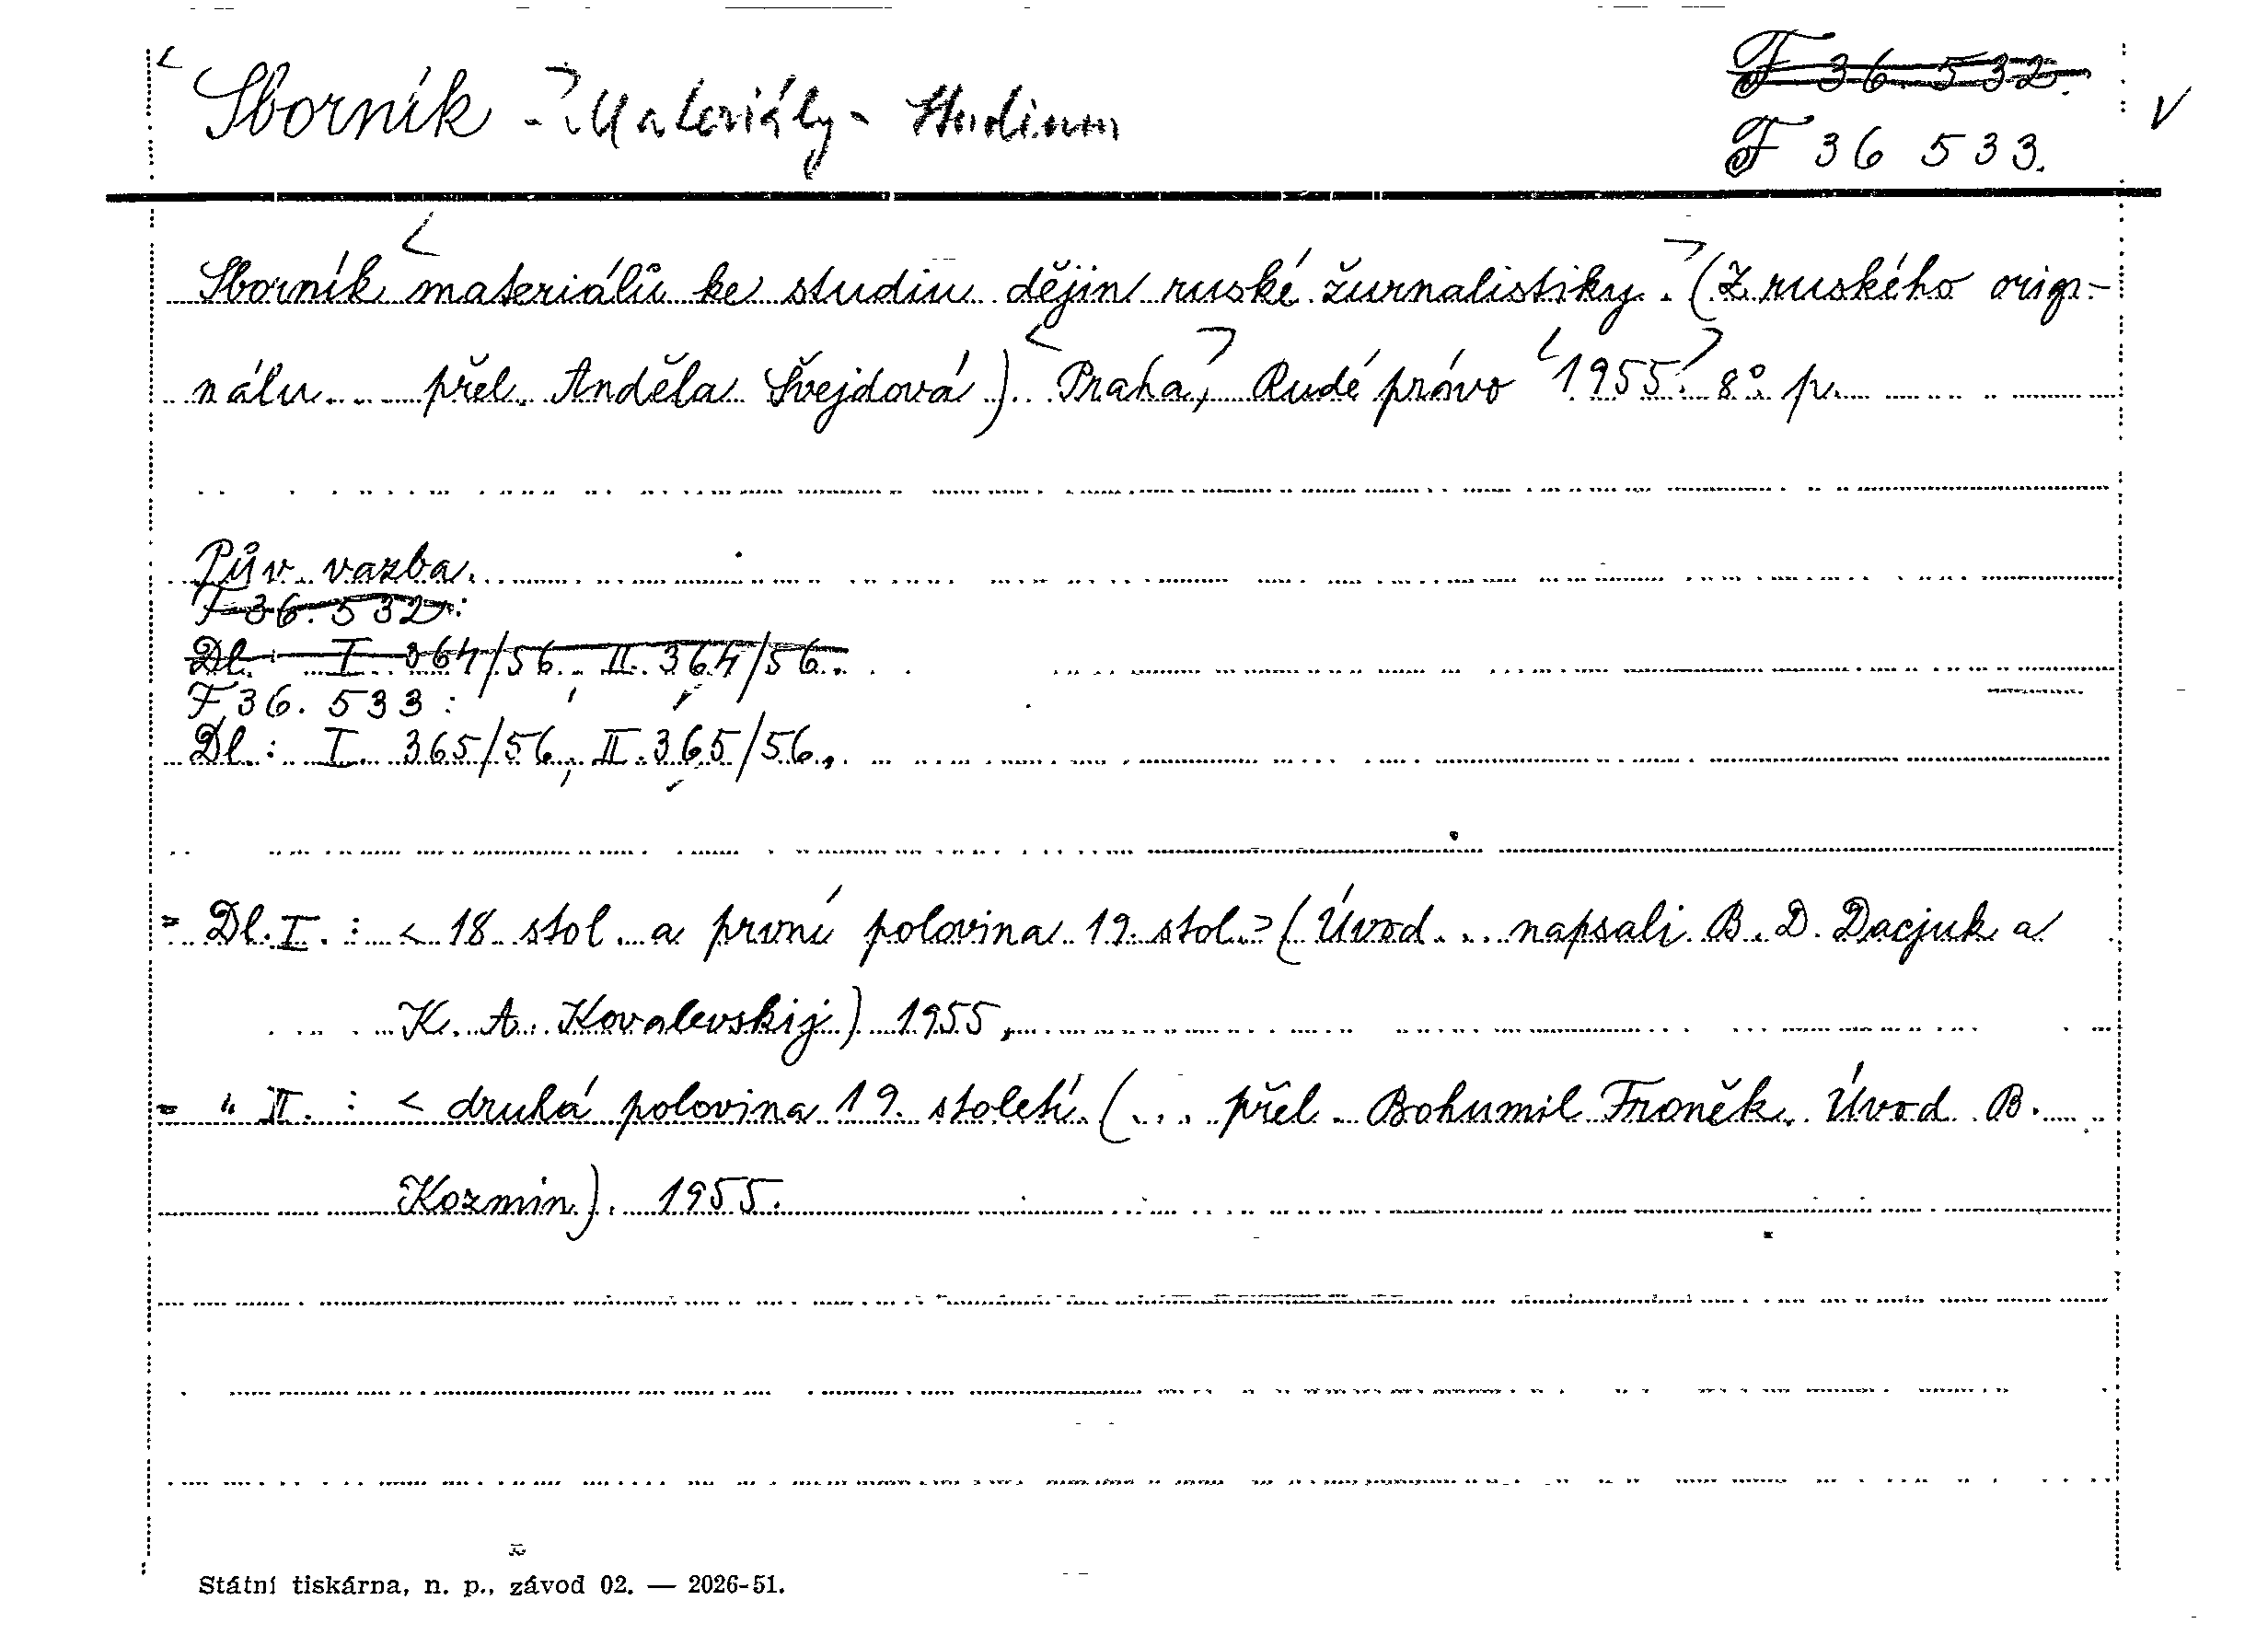 Sborník - Materiály - Studium
F 36 532.
F 36 533.
Sborník materiálů ke studiu dějin ruské žurnalistiky. (Z ruského origi-
nálu ... přel. Anděla Švejdová). Praha, Rudé právo 1955. 8°. p.
Pův. vazba.
F 36. 532:
Dl.: I. 364/56, II. 364/56.
F 36. 533:
Dl.: I. 365/56, II. 365/56.
= Dl. I. : < 18 stol. a první polovina 19. stol. > (Úvod ... napsali B. D. Dacjuk a
K. A. Kovalevskij) 1955.
= " II. : < druhá polovina 19. století. (... přel. Bohumil Froněk. Úvod B.
Kozmin). 1955.
Státní tiskárna, n. p., závod 02. — 2026-51.